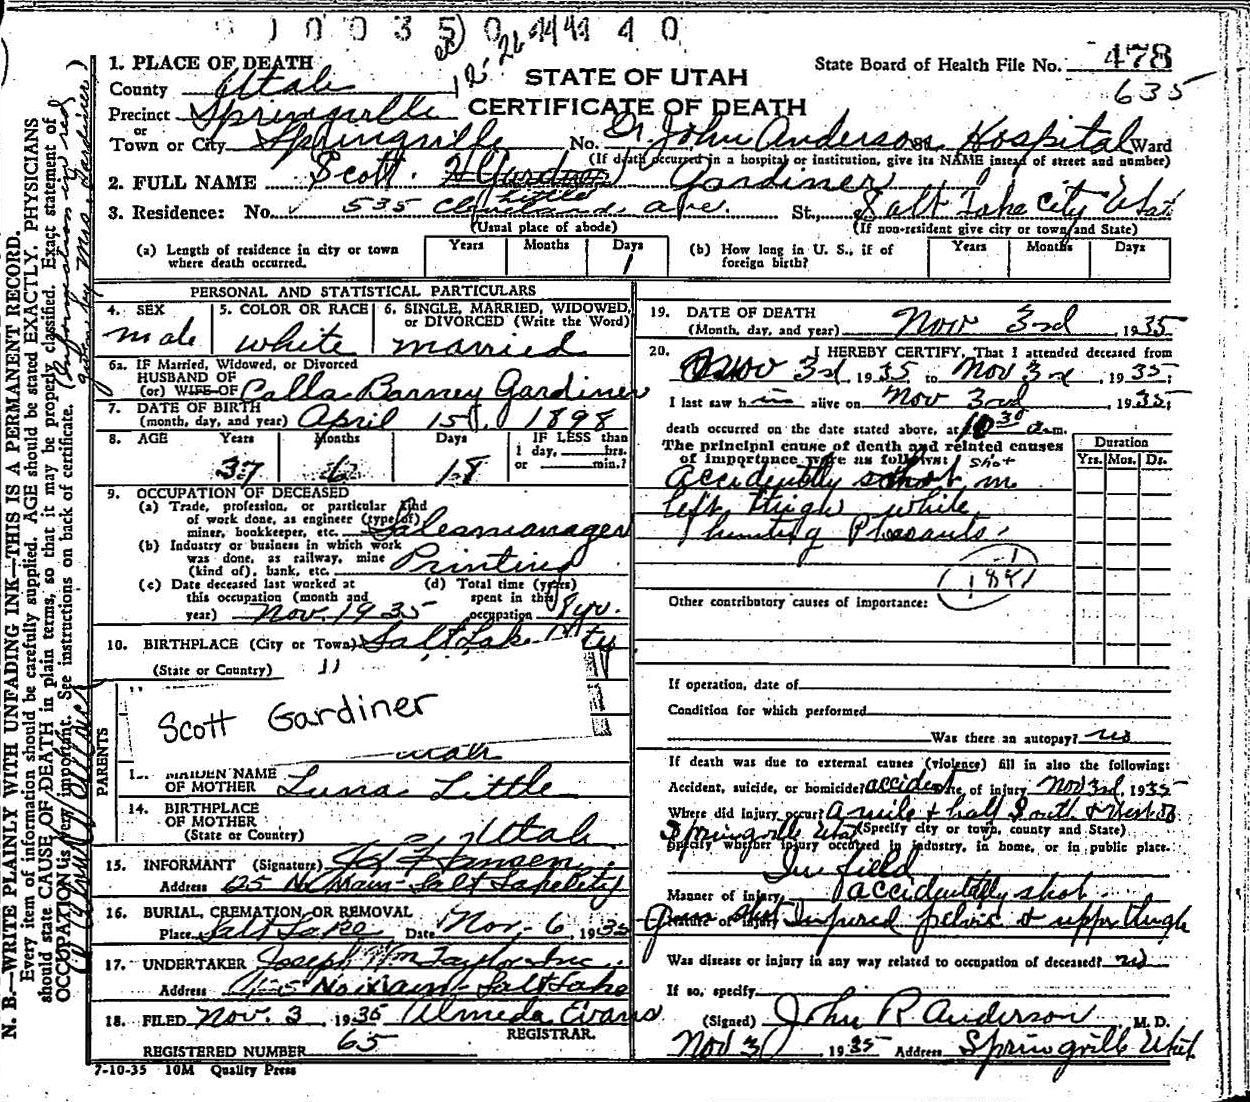 10035044440
12-26
478
State Board of Health File No.
635
1. PLACE OF DEATH
County Utah
STATE OF UTAH
Precinct Springville
CERTIFICATE OF DEATH
or
Town or City Springville No. Dr John Anderson St. Hospital Ward
(If death occurred in a hospital or institution, give its NAME instead of street and number)
2. FULL NAME Scott. Gardiner
Little
3. Residence: No. 535 Cleveland ave. St., Salt Lake City Utah
(Usual place of abode) (If non-resident give city or town and State)
(a) Length of residence in city or town where death occurred. Years Months Days 1
(b) How long in U. S., if of foreign birth? Years Months Days
PERSONAL AND STATISTICAL PARTICULARS
4. SEX male
5. COLOR OR RACE white
6. SINGLE, MARRIED, WIDOWED, or DIVORCED (Write the Word) married
6a. IF Married, Widowed, or Divorced
HUSBAND OF
(or) WIFE OF Calla Barney Gardiner
7. DATE OF BIRTH
(month, day, and year) April 15, 1898
8. AGE Years Months Days IF LESS than
1 day, hrs.
or min.?
37 6 18
9. OCCUPATION OF DECEASED
(a) Trade, profession, or particular kind
of work done, as engineer (type of)
miner, bookkeeper, etc. Salesmanager
(b) Industry or business in which work
was done, as railway, mine
(kind of), bank, etc. Printing
(c) Date deceased last worked at
this occupation (month and
year) Nov. 1935
(d) Total time (years)
spent in this
occupation 8 yr.
10. BIRTHPLACE (City or Town) Salt Lake City
(State or Country) 11
PARENTS
Scott Gardiner
Utah
MAIDEN NAME
OF MOTHER Luna Little
14. BIRTHPLACE
OF MOTHER
(State or Country) Utah
15. INFORMANT (Signature) Hansen
Address 125 No Main - Salt Lake City
16. BURIAL, CREMATION, OR REMOVAL
Place Salt Lake Date Nov. 6, 1935
17. UNDERTAKER Joseph Wm Taylor Inc.
Address 125 No Main - Salt Lake
18. FILED Nov. 3, 1935 Almeda Evans
REGISTRAR.
REGISTERED NUMBER 65
7-10-35 10M Quality Press
19. DATE OF DEATH
(Month, day, and year) Nov 3rd, 1935
20. I HEREBY CERTIFY, That I attended deceased from
Nov 3rd, 1935 to Nov 3rd, 1935;
I last saw h im alive on Nov 3rd, 1935;
death occurred on the date stated above, at 10 30 a.m.
The principal cause of death and related causes
of importance were as follows: Duration
Yrs. Mos. Ds.
shot
accidently shot in
left thigh while
hunting Pheasants
1
(189)
Other contributory causes of importance:
If operation, date of
Condition for which performed
Was there an autopsy? no
If death was due to external causes (violence) fill in also the following:
Accident, suicide, or homicide? accident Date of injury Nov 3rd, 1935
Where did injury occur? A mile + half South + West of
Springville Utah (Specify city or town, county and State)
Specify whether injury occurred in industry, in home, or in public place.
In field
Manner of injury accidentally shot
Nature of injury Gun shot Injured pelvis & upper thigh
Was disease or injury in any way related to occupation of deceased? no
If so, specify
(Signed) John R Anderson M. D.
Nov 3, 1935 Address Springville Utah
N. B.—WRITE PLAINLY WITH UNFADING INK—THIS IS A PERMANENT RECORD.
Every item of information should be carefully supplied. AGE should be stated EXACTLY. PHYSICIANS
should state CAUSE OF DEATH in plain terms, so that it may be properly classified. Exact statement of
OCCUPATION is very important. See instructions on back of certificate.
(Information in red
given by Mrs. Gardiner)